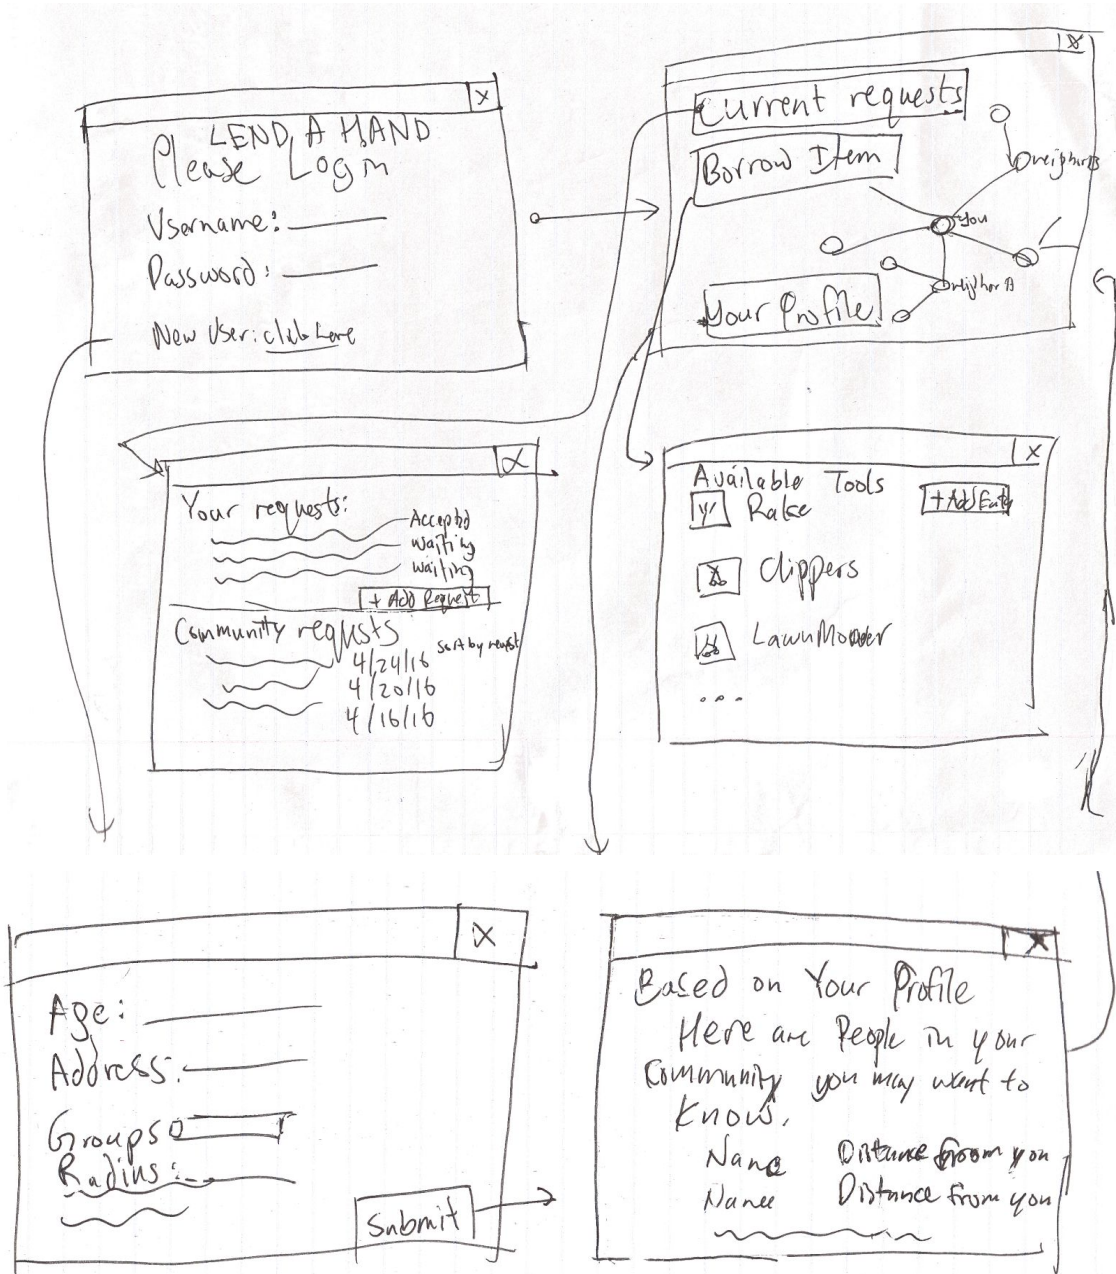 LEND A HAND
Please Login
Username:
Password:
New User: click here
Current requests
Borrow Item
Your Profile
neighbor B
You
neighbor A
Your requests:
Accepted
waiting
waiting
+ Add Request
Community requests
sort by
4/24/16
4/20/16
4/16/16
Available Tools
+ Add
Rake
Clippers
...
Age:
Address:
Groups
Radius:
Submit
Based on Your Profile
Here are People in your
Community you may want to
Know.
Name Distance from you
Name Distance from you